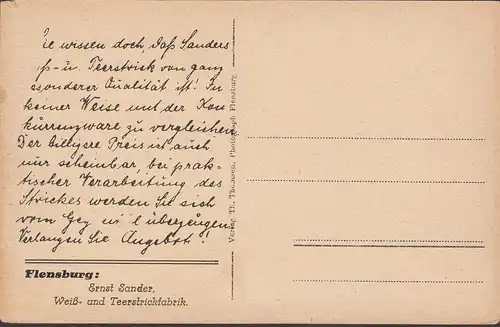 Sie wissen doch, daß Sanders
ß- u. Teerstrick von ganz
esonderer Qualität ist! In
keiner Weise mit der Kon
kurrenzware zu vergleichen.
Der billigere Preis ist auch
nur scheinbar, bei prak-
tischer Verarbeitung des
Strickes werden Sie sich
vom Geg überzeugen
Verlangen Sie Angebot!
Flensburg:
Ernst Sander,
Weiß- und Teerstrickfabrik.
Verlag Th. Thomsen, Photograph Flensburg